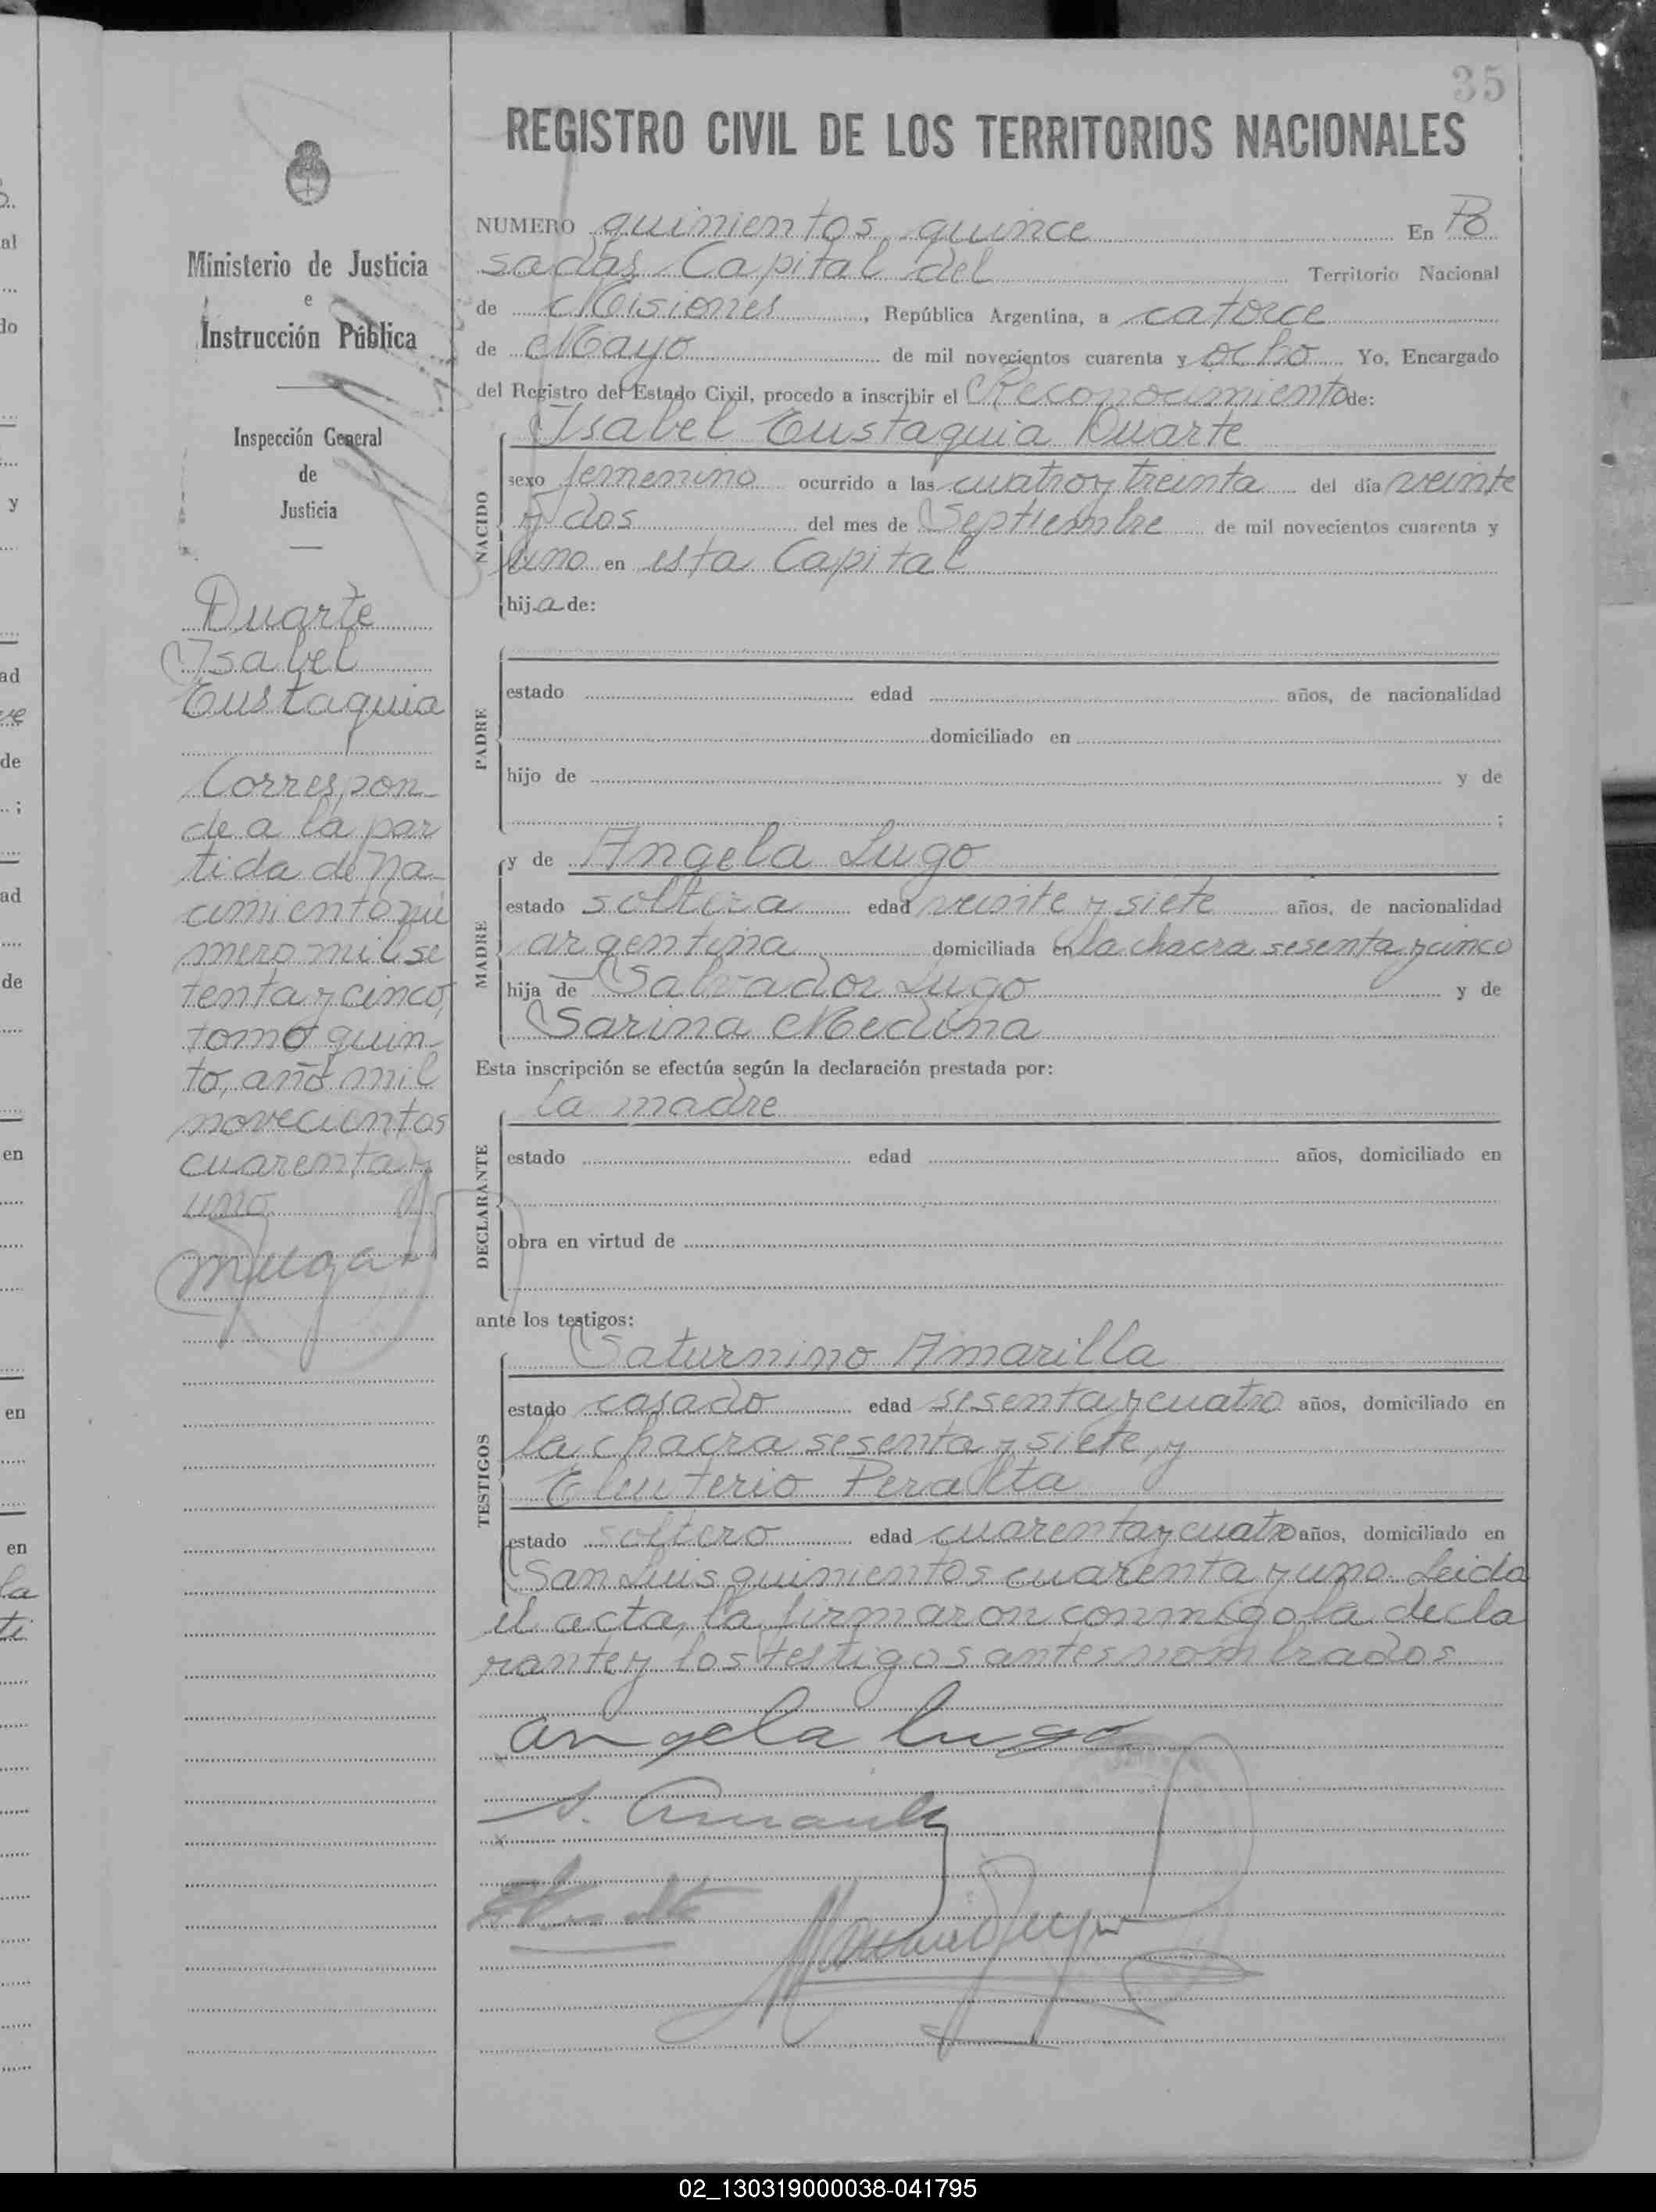 35
REGISTRO CIVIL DE LOS TERRITORIOS NACIONALES
NUMERO quinientos quince En Po
sadas Capital del Territorio Nacional
de Misiones, República Argentina, a catorce
de Mayo de mil novecientos cuarenta y ocho Yo, Encargado
del Registro del Estado Civil, procedo a inscribir el Reconocimiento de:
NACIDO
Isabel Eustaquia Duarte
sexo femenino ocurrido a las cuatro y treinta del día veinte
y dos del mes de Septiembre de mil novecientos cuarenta y
uno en esta Capital
hija de:
PADRE
estado edad años, de nacionalidad
domiciliado en
hijo de y de
;
MADRE
y de Angela Lugo
estado soltera edad veinte y siete años, de nacionalidad
argentina domiciliada en la chacra sesenta y cinco
hija de Salvador Lugo y de
Sarina Medina
Esta inscripción se efectúa según la declaración prestada por:
DECLARANTE
la madre
estado edad años, domiciliado en
obra en virtud de
ante los testigos:
TESTIGOS
Saturnino Amarilla
estado casado edad sesenta y cuatro años, domiciliado en
la chacra sesenta y siete, y
Eleuterio Peralta
estado soltero edad cuarenta y cuatro años, domiciliado en
San Luis quinientos cuarenta y uno. Leida
el acta, la firmaron conmigo la decla
rante y los testigos antes nombrados
angela lugo
Ministerio de Justicia
e
Instrucción Pública
Inspección General
de
Justicia
Duarte
Isabel
Eustaquia
Correspon-
de a la par
tida de na-
cimiento nú
mero mil se
tenta y cinco,
tomo quin-
to, año mil
novecientos
cuarenta y
uno
al
do
y
ad
de
;
ad
de
en
en
en
la
02_130319000038-041795